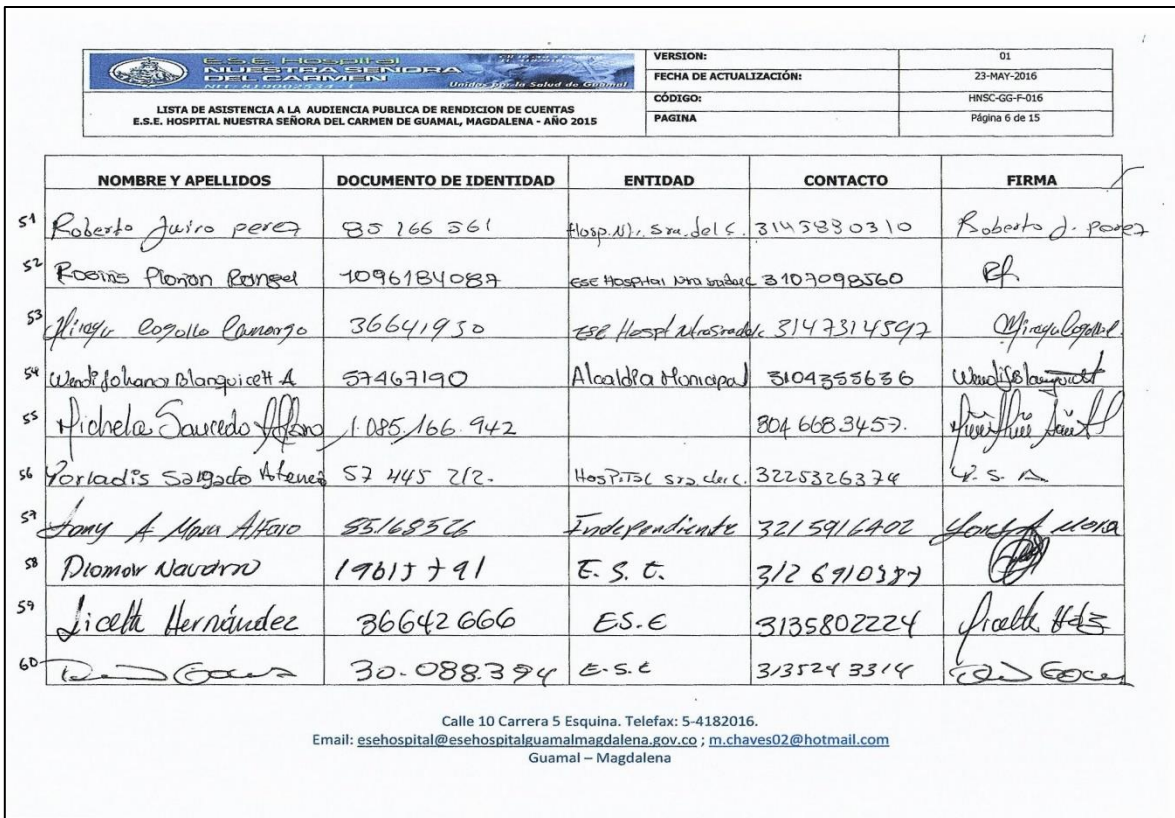 E.S.E. Hospital
NUESTRA SEÑORA
DEL CARMEN
NIT: 819002534 - 1
Unidos por la Salud de Guamal
LISTA DE ASISTENCIA A LA AUDIENCIA PUBLICA DE RENDICION DE CUENTAS
E.S.E. HOSPITAL NUESTRA SEÑORA DEL CARMEN DE GUAMAL, MAGDALENA - AÑO 2015
VERSION: 01
FECHA DE ACTUALIZACIÓN: 23-MAY-2016
CÓDIGO: HNSC-GG-F-016
PAGINA Página 6 de 15
NOMBRE Y APELLIDOS DOCUMENTO DE IDENTIDAD ENTIDAD CONTACTO FIRMA
51 Roberto Jairo perez 85 166 561 Hosp. Ntr. Sra. del C. 3145880310 Roberto J. perez
52 Rangel 1096184087 ESE Hospital Ntra 3107098560
53 Cogollo Camargo 36641950 ESE Hospt 3147314597
54 Wendi Johana Blanquicett A 57467190 Alcaldia Municipal 3104355636
55 Michela Saucedo Alfaro 1.085.166.942 304 668 3457.
56 Yorladis Salgado Atenes 57 445 212. Hospital sra. del c. 3225326374 Y. S. A.
57 A Mora Alfaro 85168526 Independiente 3215916402 A Mora
58 Diomar Navarro 19615791 E. S. E. 312 6910387
59 Liceth Hernández 36642666 ES.E 3135802224 Liceth Hdz
60 30.088.394 E.S.E 313524 3314
Calle 10 Carrera 5 Esquina. Telefax: 5-4182016.
Email: esehospital@esehospitalguamalmagdalena.gov.co ; m.chaves02@hotmail.com
Guamal – Magdalena